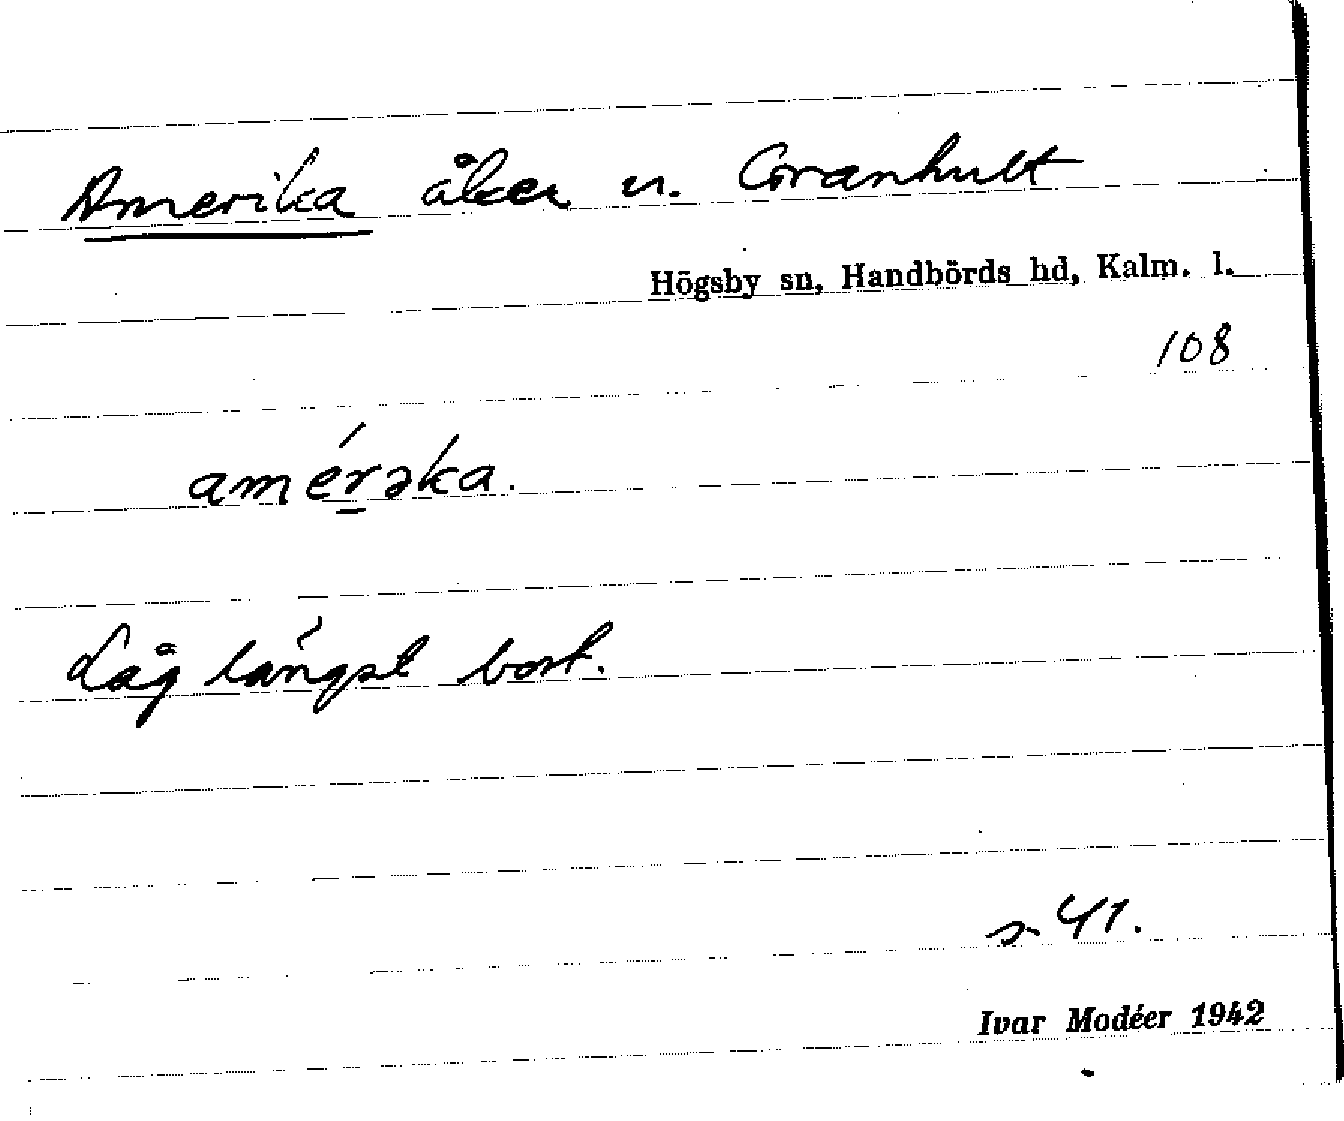 Amerika åker u. Granhult
Högsby sn, Handbörds hd, Kalm. l.
108
amérəka.
Låg längst bort.
s 41.
Ivar Modéer 1942